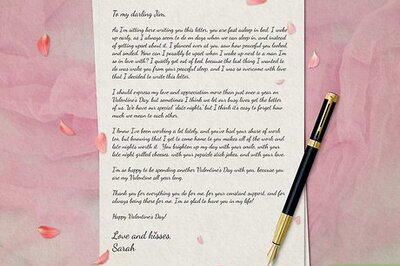 To my darling Jim,
As I'm sitting here writing you this letter, you are fast asleep in bed. I woke
up early, as I always seem to do on days when we can sleep in, and instead
of getting upset about it, I glanced over at you, saw how peaceful you looked,
and smiled. How can I possibly be upset when I wake up next to a man I'm
so in love with? I quietly got out of bed, because the last thing I wanted to
do was wake you from your peaceful sleep, and I was so overcome with love
that I decided to write this letter.
I should express my love and appreciation more than just once a year on
Valentine's Day, but sometimes I think we let our busy lives get the better
of us. We have our special 'date nights,' but I think it's easy to forget how
much we mean to each other.
I know I've been working a lot lately, and you've had your share of work
too, but knowing that I get to come home to you makes all of the work and
late nights worth it. You brighten up my day with your smile, with your
late night grilled cheeses, with your popsicle stick jokes, and with your love.
I'm so happy to be spending another Valentine's Day with you, because you
are my Valentine all year long.
Thank you for everything you do for me, for your constant support, and for
always being there for me. I'm so glad to have you in my life!
Happy Valentine's Day!
Love and kisses,
Sarah